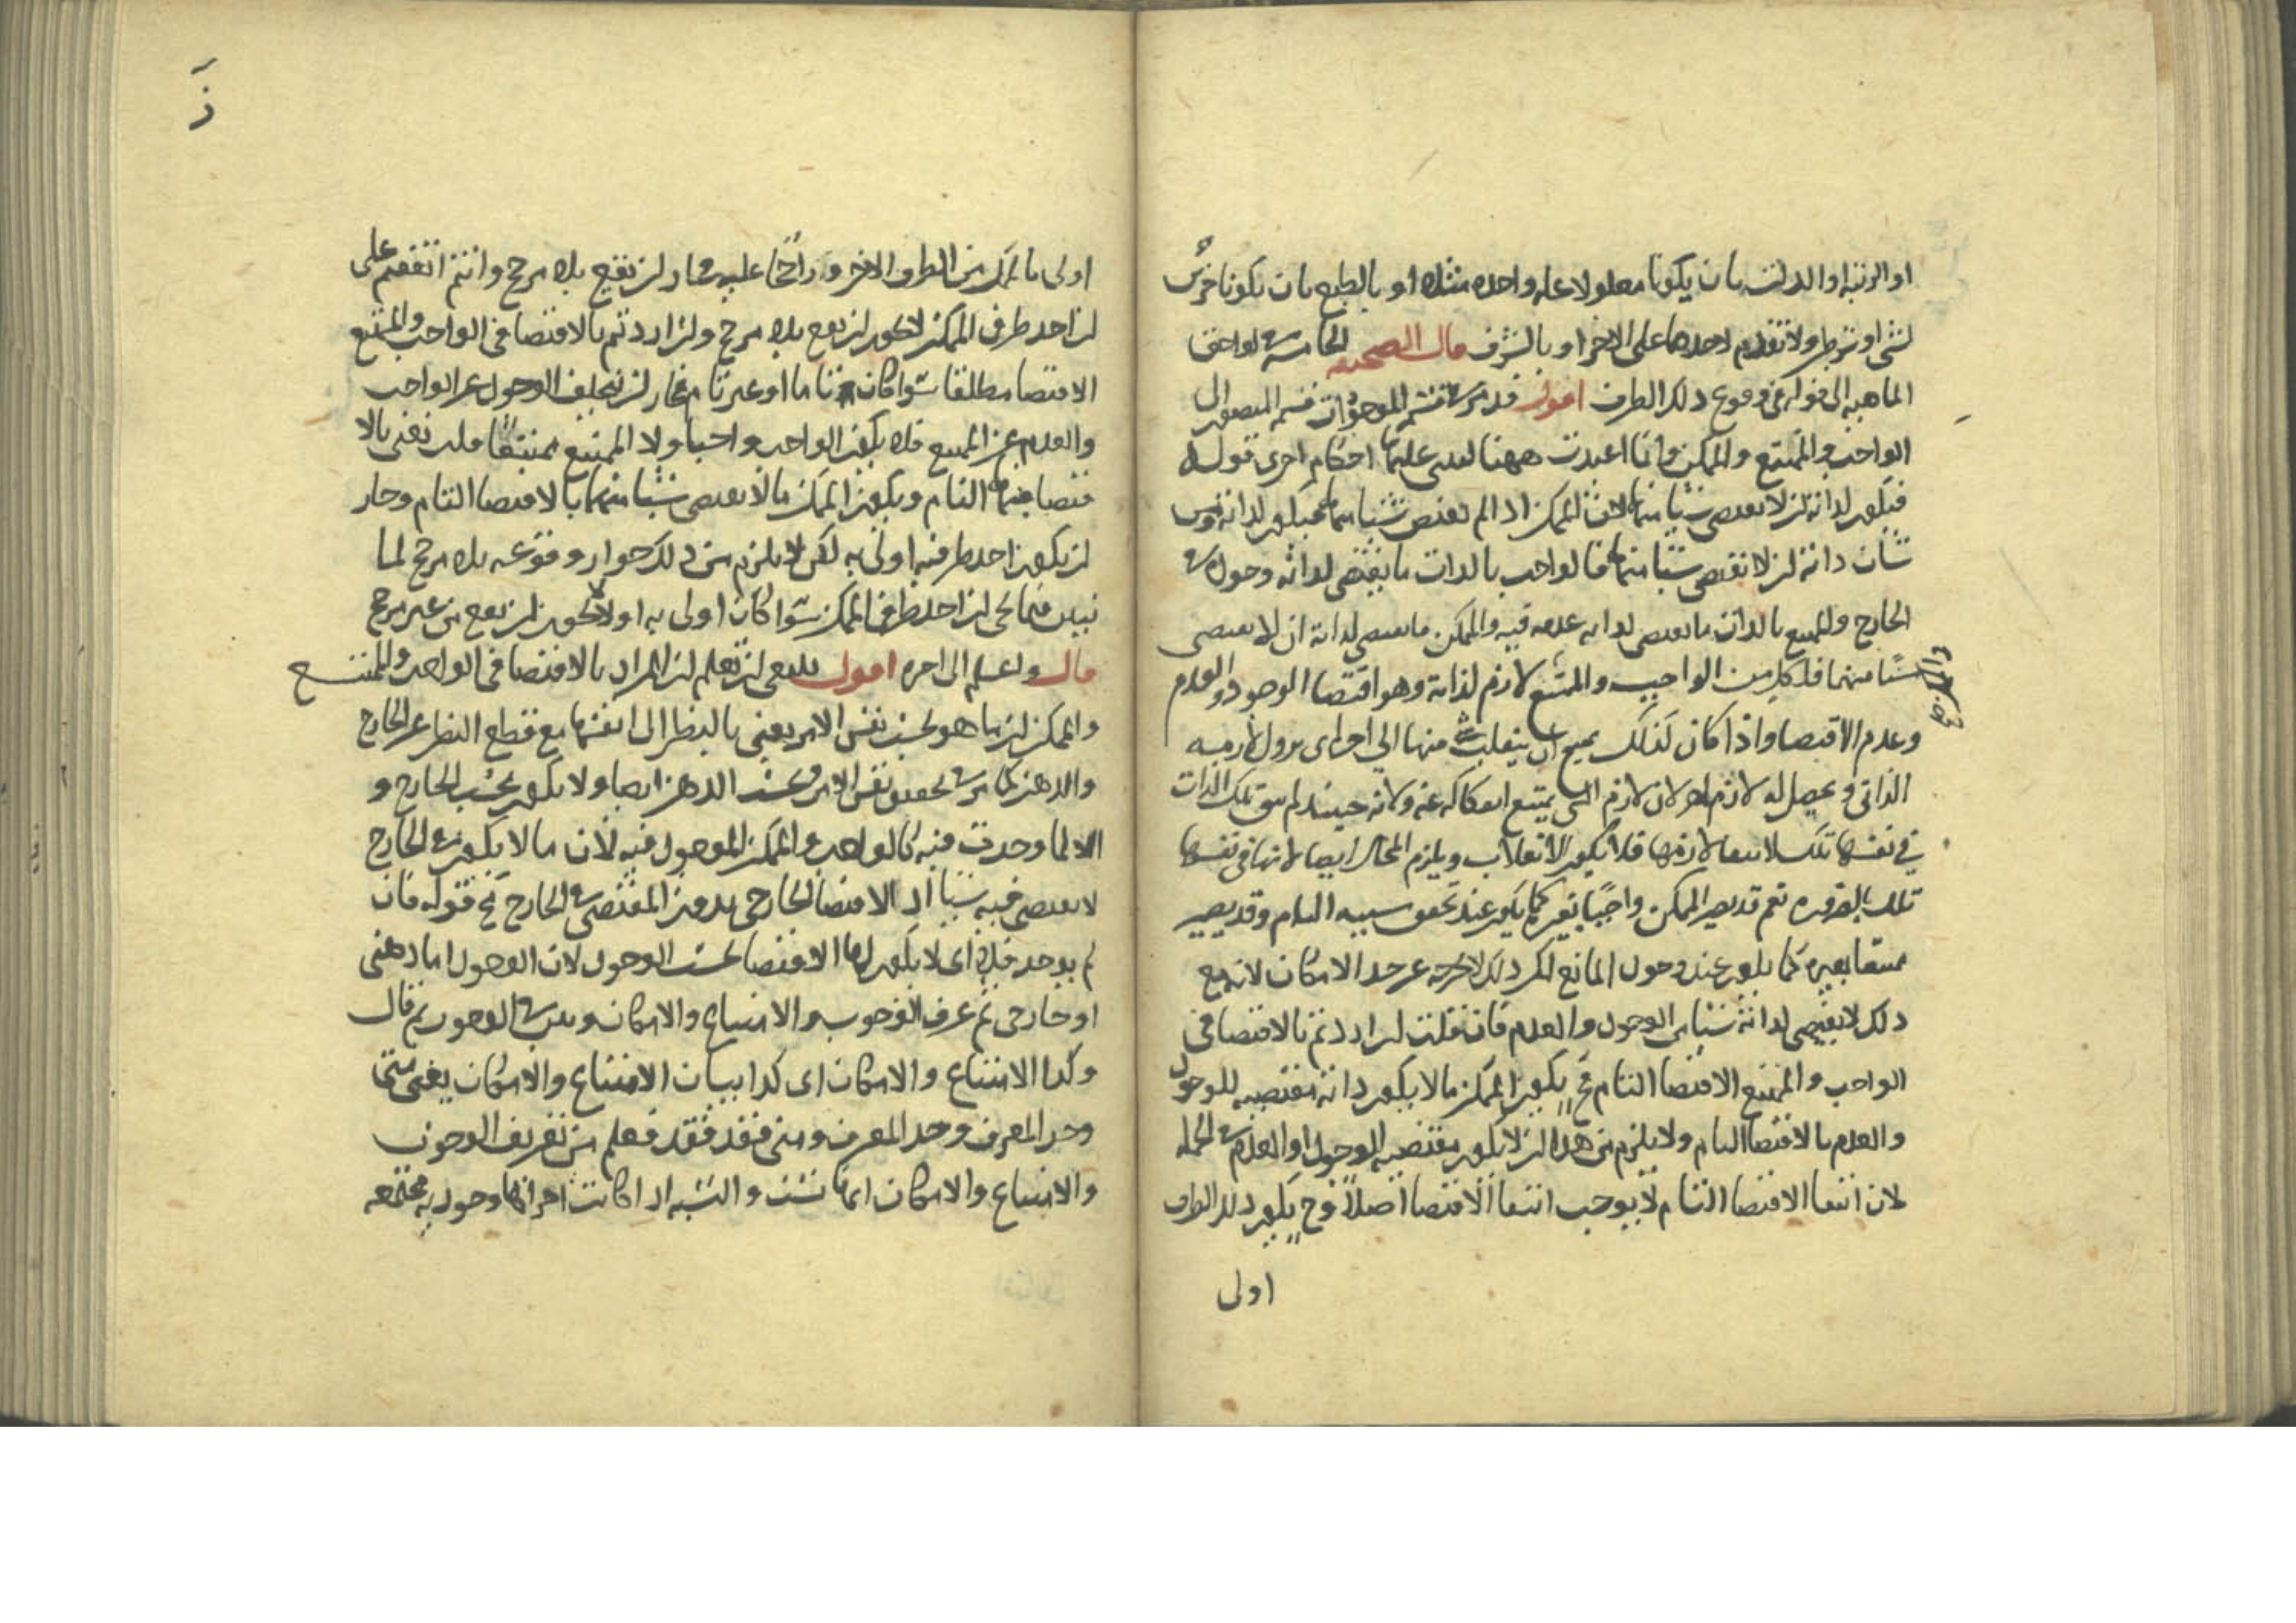 او الرتبة او الذات بان يكونا معلولا علة واحدة مثلا او بالطبع بان يكونا جزئى
لشئ او شرط ولا تقدم لاحدهما على الاخر او بالشرف قال الصحيفه الخامسة لواحق
الماهية الى قوله فى وقوع ذلك الطرف اقول قد مرت قسم الموجودات قسم المتصور الى
الواجب والممتنع والممكن وانما اعيدت ههنا لتبتنى عليها احكام اخرى قوله
فيكون لذاته ان لا يقتضى شيئا منهما لان الممكن اذا لم يقتض شيئا منهما فيكون لذاته من
شان ذاته ان لا تقتضى شيئا منهما فالواجب بالذات ما يقتضى لذاته وجوده فى
الخارج والممتنع بالذات ما يقتضى لذاته عدمه فيه والممكن ما يقتضى لذاته ان لا يقتضى
شيئا منهما فلكل من الواجب والممتنع لازم لذاته وهو اقتضا الوجود والعدم
وعدم الاقتضا واذا كان كذلك يمتنع ان ينقلب شئ منها الى اخرى بزول لازمه
الذاتى ويحصل له لازم اخر لان لازم الشئ يمتنع انفكاكه عنه ولانه حينئذ لم تبق تلك الذات
فى نفسها تلك لانتفا لازمها فلا يكون الانقلاب ويلزم المحال ايضا لانها فى نفسها
تلك بالضرورة نعم قد يصير الممكن واجبا بغيره كما يكون عند تحقق سببه التام وقد يصير
ممتنعا بغيره كما يكون عند وجود المانع لكن ذلك لا يخرجه عن حد الامكان لانه مع
ذلك لا يقتضى لذاته شيئا من الوجود والعدم فان قلت ان اردتم بالاقتضا فى
الواجب والممتنع الاقتضا التام فح يكون الممكن ما لا يكون ذاته مقتضيه للوجود
والعدم بالاقتضا التام ولا يلزم من هذا ان لا يكون مقتضيه للوجود او العدم فى الجملة
لان انتفا الاقتضا التام لا يوجب انتفا الاقتضا اصلا وح يكون ذلك الطرف
اولى
اولى بالممكن من الطرف الاخر وراجحا عليه فجاز ان يقع بلا مرجح وانتم اتفقتم على
ان احد طرفى الممكن لا يجوز ان يقع بلا مرجح وان اردتم بالاقتضا فى الواجب والممتنع
الاقتضا مطلقا سوا كان تاما او غير تام فجاز ان يتخلف الوجود عن الواجب
والعدم عن الممتنع فلا يكون الواجب واجبا ولا الممتنع ممتنعا قلت نعنى بالا
قتضا فيهما التام ويكون الممكن ما لا يقتضى شيئا منهما بالاقتضا التام وجاز
ان يكون احد طرفيه اولى به لكن لا يلزم من ذلك جواز وقوعه بلا مرجح لما
نبين فيما يجى ان احد طرفى الممكن سوا كان اولى به او لا لا يجوز ان يقع من غير مرجح
قال واعلم الى اخره اقول ينبغى ان تعلم ان المراد بالاقتضا فى الواجب والممتنع
والممكن ان ما هو بحسب نفس الامر يعنى بالنظر الى انفسها مع قطع النظر عن الخارج
والذهن كما مر فى تحقيق نفس الامر وبحسب الذهن ايضا ولا يكون بحسب الخارج و
الا لما وجدت فيه كالواجب والممكن الموجود فيه لان ما لا يكون فى الخارج
لا يقتضى فيه شيئا اذ الاقتضا الخارجى بدون المقتضى فى الخارج مح قوله فان
لم يوجد فلا اى لا يكون لها الاقتضا بحسب الوجود لان الوجود اما ذهنى
او خارجى ثم عرف الوجوب والامتناع والامكان وبين الوجوب ثم قال
وكذا الامتناع والامكان اى كذا بيان الامتناع والامكان يعنى متى
وجد المعرف وجد المعرف ومتى فقد فقد فعلم من تعريف الوجوب
والامتناع والامكان انها نسب والنسبة اذا كانت اجزاؤها وجودية مجتمعة